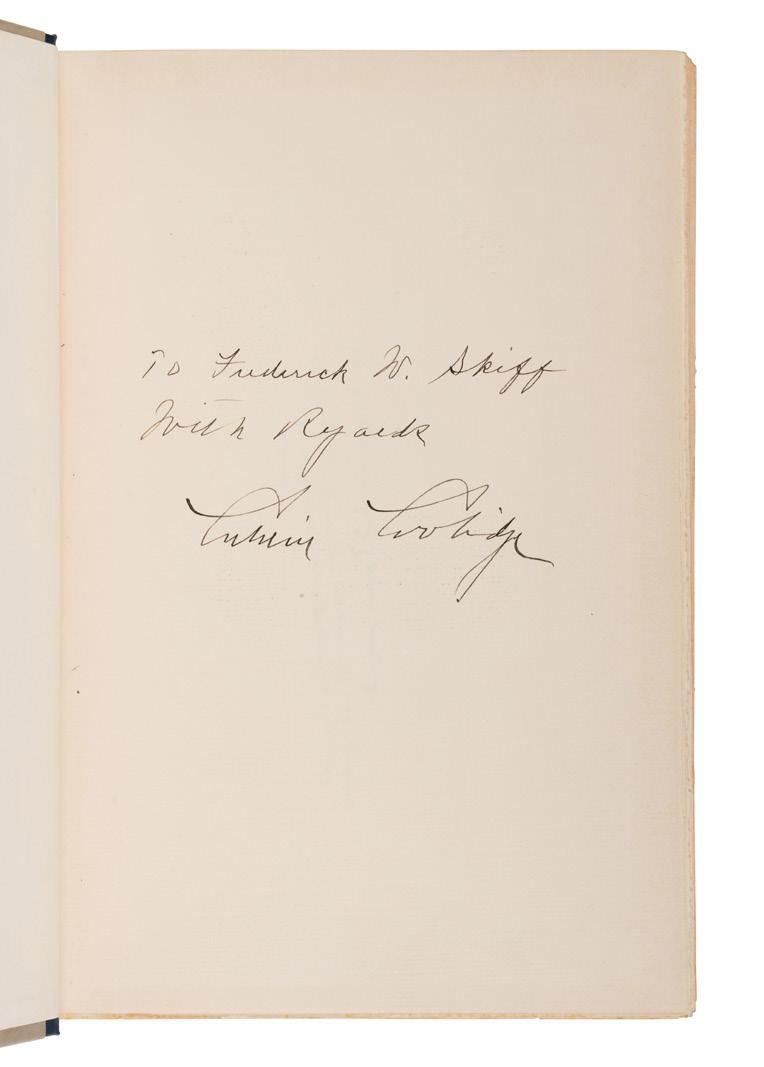 To Frederick W. Skiff
With Regards
Calvin Coolidge